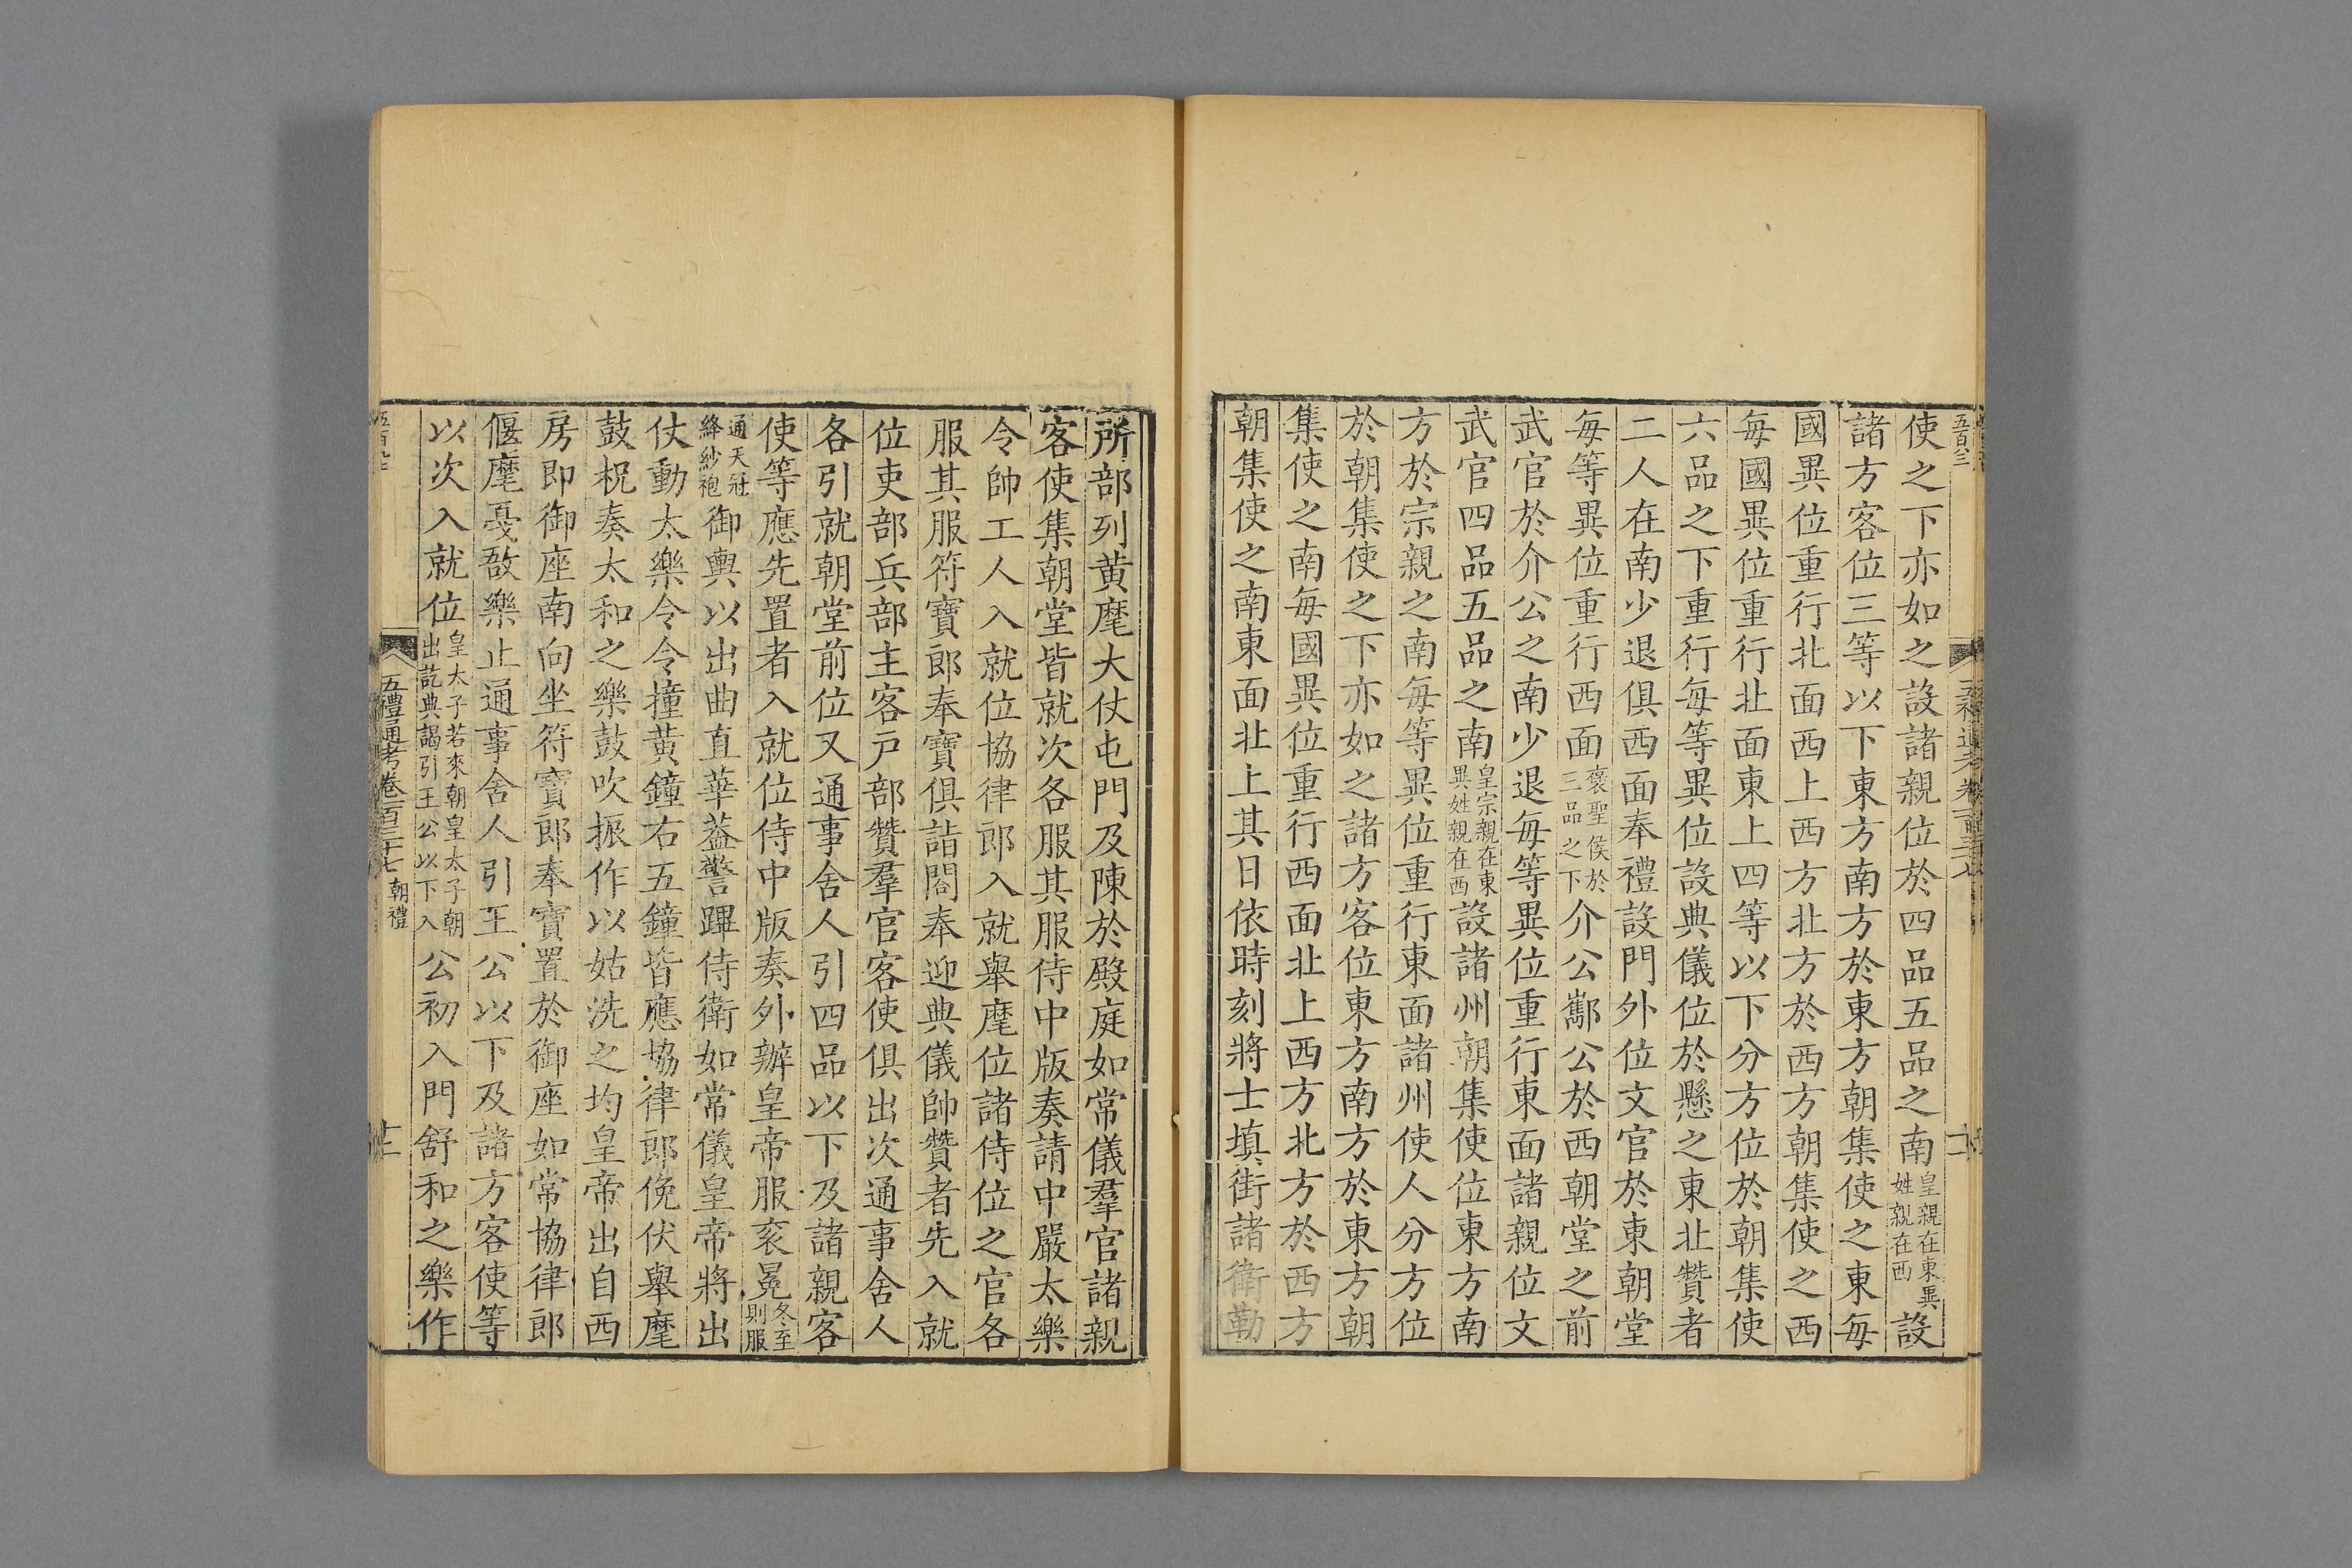 使之下亦如之設諸親位於四品五品之南皇親在東異姓親在西設
諸方客位三等以下東方南方於東方朝集使之東每
國異位重行北面西上西方北方於西方朝集使之西
每國異位重行北面東上四等以下分方位於朝集使
六品之下重行每等異位設典儀位於懸之東北贊者
二人在南少退俱西面奉禮設門外位文官於東朝堂
每等異位重行西面褒聖侯於三品之下介公酅公於西朝堂之前
武官於介公之南少退每等異位重行東面諸親位文
武官四品五品之南皇宗親在東異姓親在西設諸州朝集使位東方南
方於宗親之南每等異位重行東面諸州使人分方位
於朝集使之下亦如之諸方客位東方南方於東方朝
集使之南每國異位重行西面北上西方北方於西方
朝集使之南東面北上其日依時刻將士填街諸衛勒
所部列黃麾大仗屯門及陳於殿庭如常儀羣官諸親
客使集朝堂皆就次各服其服侍中版奏請中嚴太樂
令帥工人入就位協律郎入就舉麾位諸侍位之官各
服其服符寶郎奉寶俱詣閤奉迎典儀帥贊者先入就
位吏部兵部主客戶部贊羣官客使俱出次通事舍人
各引就朝堂前位又通事舍人引四品以下及諸親客
使等應先置者入就位侍中版奏外辦皇帝服袞冕冬至則服
通天冠絳紗袍御輿以出曲直華蓋警蹕侍衛如常儀皇帝將出
仗動太樂令令撞黃鐘右五鐘皆應協律郎俛伏舉麾
鼓柷奏太和之樂鼓吹振作以姑洗之均皇帝出自西
房即御座南向坐符寶郎奉寶置於御座如常協律郎
偃麾戞敔樂止通事舍人引王公以下及諸方客使等
以次入就位皇太子若來朝皇太子朝出訖典謁引王公以下入公初入門舒和之樂作
五禮通考卷一百三十七 朝禮